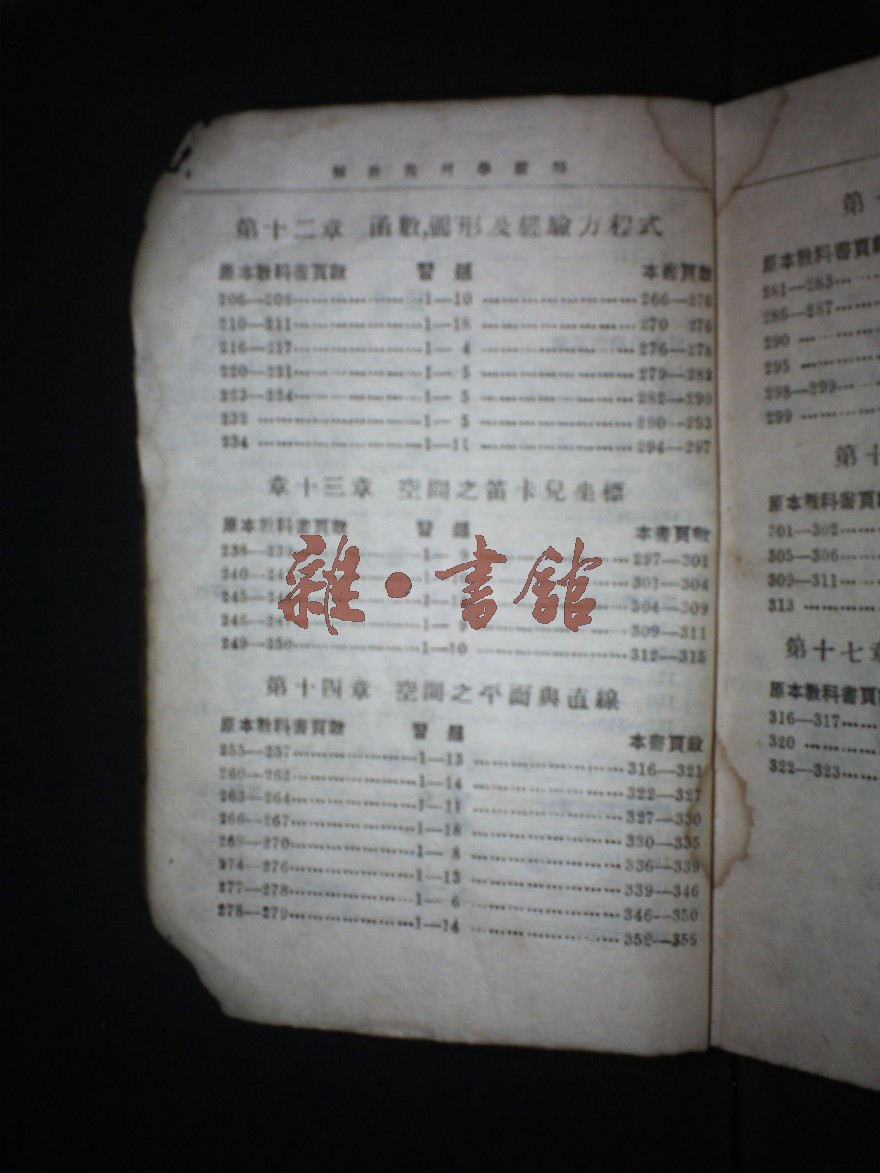 第十二章 函數,圖形及經驗方程式
原本教科書頁數 習題 本書頁數
206—208 1—10 266—270
210—211 1—18 270 276
216—217 1—4 276—278
220—221 1—5 279—282
223—224 1—5 282—290
232 1—5 290—293
234 1—11 294—297
章十三章 空間之笛卡兒坐標
原本教科書頁數 習題 本書頁數
297—301
301—304
304—309
309—311
249—250 1—10 312—315
雜·書館
第十四章 空間之平面與直線
原本教科書頁數 習題 本書頁數
255—257 1—13 316—321
260—262 1—14 322—327
263—264 1—11 327—330
266—267 1—18 330—335
269—270 1—8 336—339
274—276 1—13 339—346
277—278 1—6 346—350
278—279 1—14 352—356
第十
原本教科書頁數
281—283
286—287
290
295
298—299
299
第十
原本教科書頁數
301—302
305—306
309—311
313
第十七章
原本教科書頁數
316—317
320
322—323